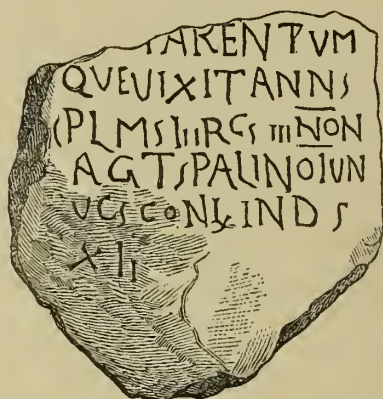 PARENTVM
QVEVIXITANNS
PLMSIIIRCS III NON
AGTSPALINOIVN
VCSCONL INDS
XII